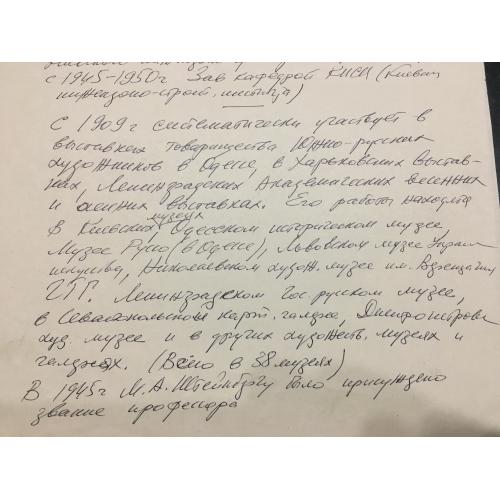 с 1945-1950г Зав кафедрой КИСИ (Киевск
инженерно-строит. института)
С 1909г систематически участвует в
выставках товарищества Южно-русских
художников в Одессе, в Харьковских выстав-
ках, Ленинградских Академических весенних
и осенних выставках. Его работы находятся
в Киевских музеях, Одесском историческом музее,
Музее Русио (в Одессе), Львовском музее Украин
искусства, Николаевском худож. музее им. Верещагина
ГТГ. Ленинградском Гос. русском музее,
в Севастопольской карт. галерее, Днепропетровск
худ. музее и в других художеств. музеях и
галереях. (Всего в 38 музеях)
В 1945г М. А. Штейнбергу было присуждено
звание профессора